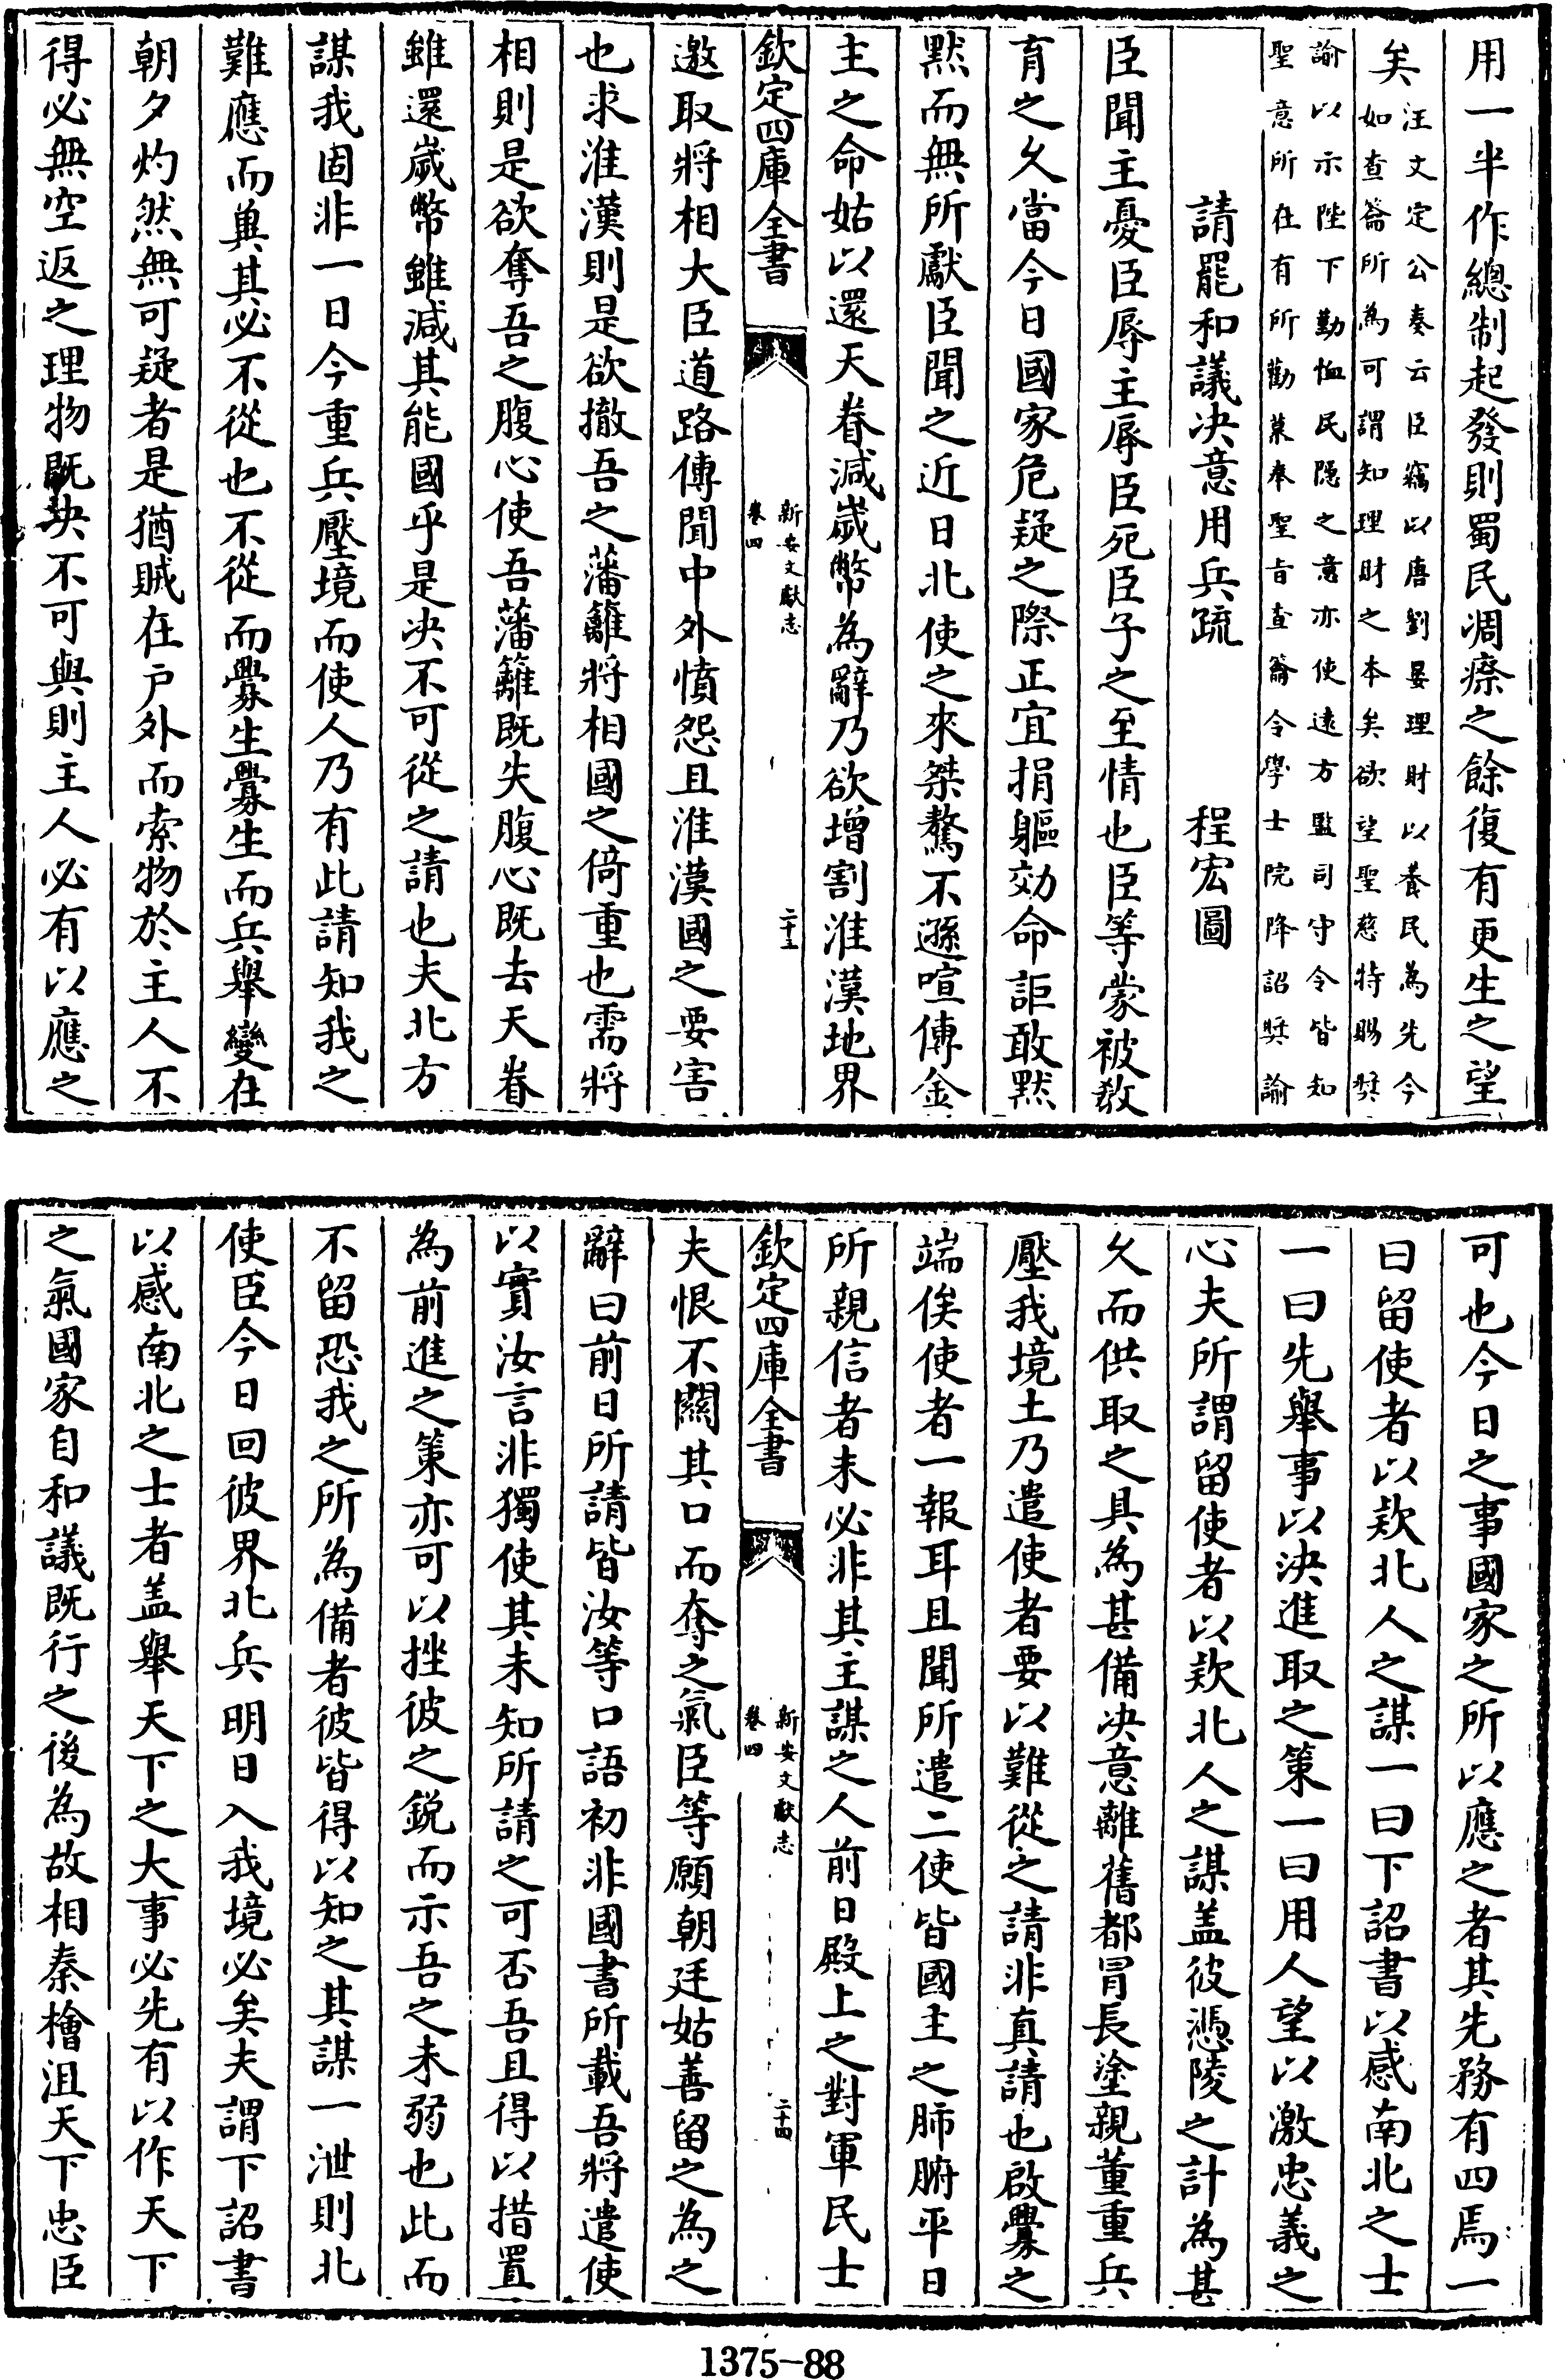 用一半作總制起發則蜀民凋瘵之餘復有更生之望
矣汪文定公奏云臣竊以唐劉晏理財以養民為先今
如查籥所為可謂知理財之本矣欲望聖慈特賜奬
諭以示陛下勤恤民隠之意亦使逺方監司守令皆知
聖意所在有所勸葉奉聖旨查籥令學士院降詔奬諭
請罷和議决意用兵疏 程宏圖
臣聞主憂臣辱主辱臣死臣子之至情也臣等蒙被教
育之久當今日國家危疑之際正宜捐軀効命詎敢黙
黙而無所獻臣聞之近日北使之來桀驁不遜喧傳金
主之命姑以還天眷減歲幣為辭乃欲增割淮漢地界
欽定四庫全書 新安文獻志 卷四 二十三
邀取將相大臣道路傳聞中外憤怨且淮漢國之要害
也求淮漢則是欲撤吾之藩籬將相國之倚重也需將
相則是欲奪吾之腹心使吾藩籬既失腹心既去天眷
雖還歲幣雖減其能國乎是决不可從之請也夫北方
謀我固非一日今重兵壓境而使人乃有此請知我之
難應而兾其必不從也不從而釁生釁生而兵舉變在
朝夕灼然無可疑者是猶賊在户外而索物於主人不
得必無空返之理物既决不可與則主人必有以應之
可也今日之事國家之所以應之者其先務有四焉一
曰留使者以欵北人之謀一曰下詔書以感南北之士
一曰先舉事以決進取之策一曰用人望以激忠義之
心夫所謂留使者以欵北人之謀盖彼憑陵之計為甚
久而供取之具為甚備决意離舊都冒長塗親董重兵
壓我境土乃遣使者要以難從之請非真請也啟釁之
端俟使者一報耳且聞所遣二使皆國主之肺腑平日
所親信者未必非其主謀之人前日殿上之對軍民士
欽定四庫全書 新安文獻志 卷四 二十四
夫恨不闗其口而奪之氣臣等願朝廷姑善留之為之
辭曰前日所請皆汝等口語初非國書所載吾將遣使
以實汝言非獨使其未知所請之可否吾且得以措置
為前進之策亦可以挫彼之鋭而示吾之未弱也此而
不留恐我之所為備者彼皆得以知之其謀一泄則北
使臣今日回彼界北兵明日入我境必矣夫謂下詔書
以感南北之士者盖舉天下之大事必先有以作天下
之氣國家自和議既行之後為故相秦檜沮天下忠臣
1375-88